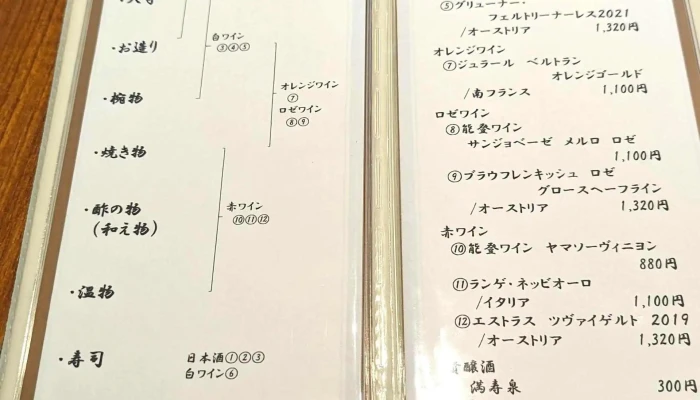 ・お造り
白ワイン
③④⑤
・椀物
オレンジワイン
⑦
ロゼワイン
⑧⑨
・焼き物
・酢の物
(和え物)
赤ワイン
⑩⑪⑫
・温物
・寿司
日本酒①②③
白ワイン⑥
⑤グリューナー・
フェルトリーナーレス2021
/オーストリア 1,320円
オレンジワイン
⑦ジェラール ベルトラン
オレンジゴールド
/南フランス 1,100円
ロゼワイン
⑧能登ワイン
サンジョベーゼ メルロ ロゼ
1,100円
⑨ブラウフレンキッシュ ロゼ
グロースヘーフライン
/オーストリア 1,320円
赤ワイン
⑩能登ワイン ヤマソーヴィニヨン
880円
⑪ランゲ・ネッビオーロ
/イタリア 1,100円
⑫エストラス ツヴァイゲルト 2019
/オーストリア 1,320円
醸酒
満寿泉 300円